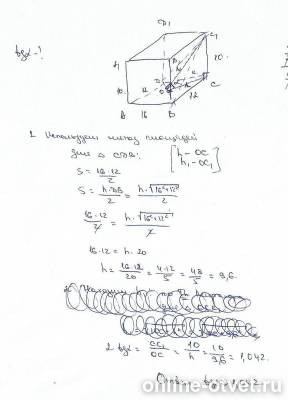 tgα-?
D₁
C₁
10
10
A 16 B
12
C
1. Используем метод площадей
для Δ CDB:
[h - OC
h₁ - OC₁]
S = 16·12/2
S = h·DB/2 = h·√16²+12²/2
16·12/2 = h·√16²+12²/2
16·12 = h·20
h = 16·12/20 = 4·12/5 = 48/5 = 9,6.
2 tgα = CC₁/OC = 10/h = 10/9,6 = 1,042.
online-otvet.ru